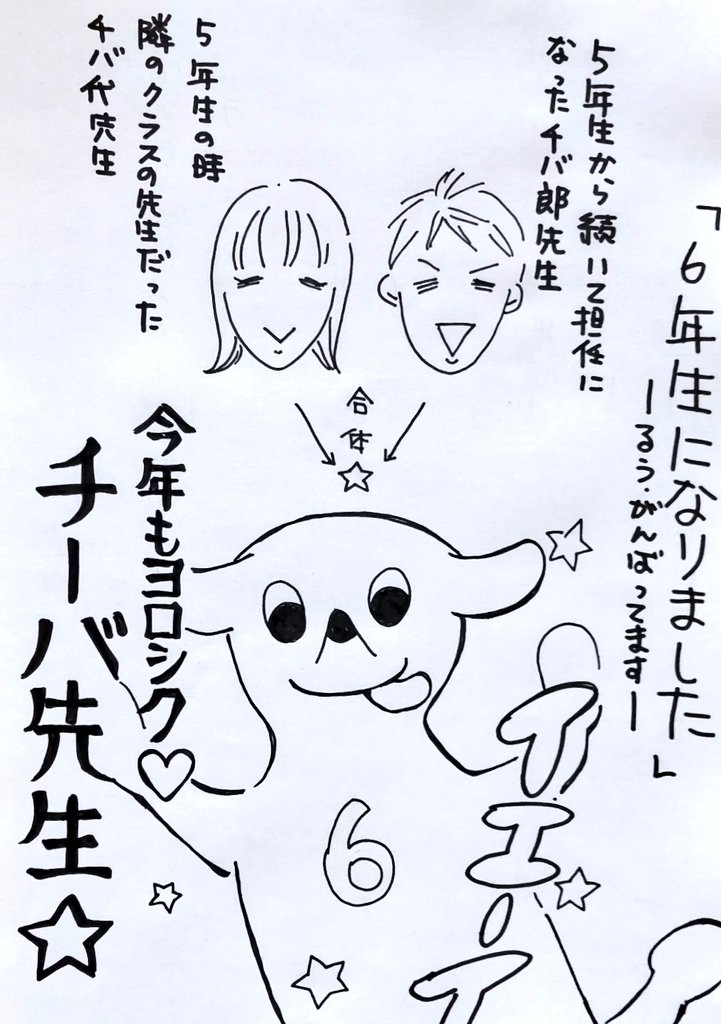 「６年生になりました」
ーるう・がんばってますー
５年生から続いて担任に
なったチバ郎先生
５年生の時
隣のクラスの先生だった
チバ代先生
合体
☆
今年もヨロシク♡
チーバ先生☆
6
イエーイ